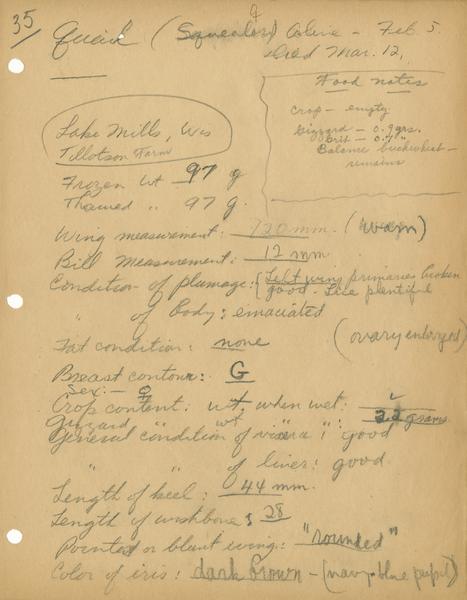 35
♀
Quail (Squealer) Alive - Feb. 5.
Died Mar. 12,
Food notes
Crop - empty
Gizzard - 0.9 grs.
Grit - 0.7 "
Balance buckwheat -
remains
Lake Mills, Wis
Tillotson Farm
Frozen wt 97 g
Thawed " 97 g.
Wing measurement: 120 mm. (worn)
Bill Measurement: 12 mm
Condition of plumage: {Left wing primaries broken
good - Lice plentiful
" of body: emaciated
Fat condition: none
(ovary enlarged)
Breast contour: G
Sex: - ♀
Crop content: wt when wet: -
Gizzard " wt " " 2.2 grams
General condition of viscera: good
" " of liver: good
Length of keel: 44 mm.
Length of wishbone: 28
Pointed or blunt wing: "rounded"
Color of iris: dark brown - (navy-blue pupil)